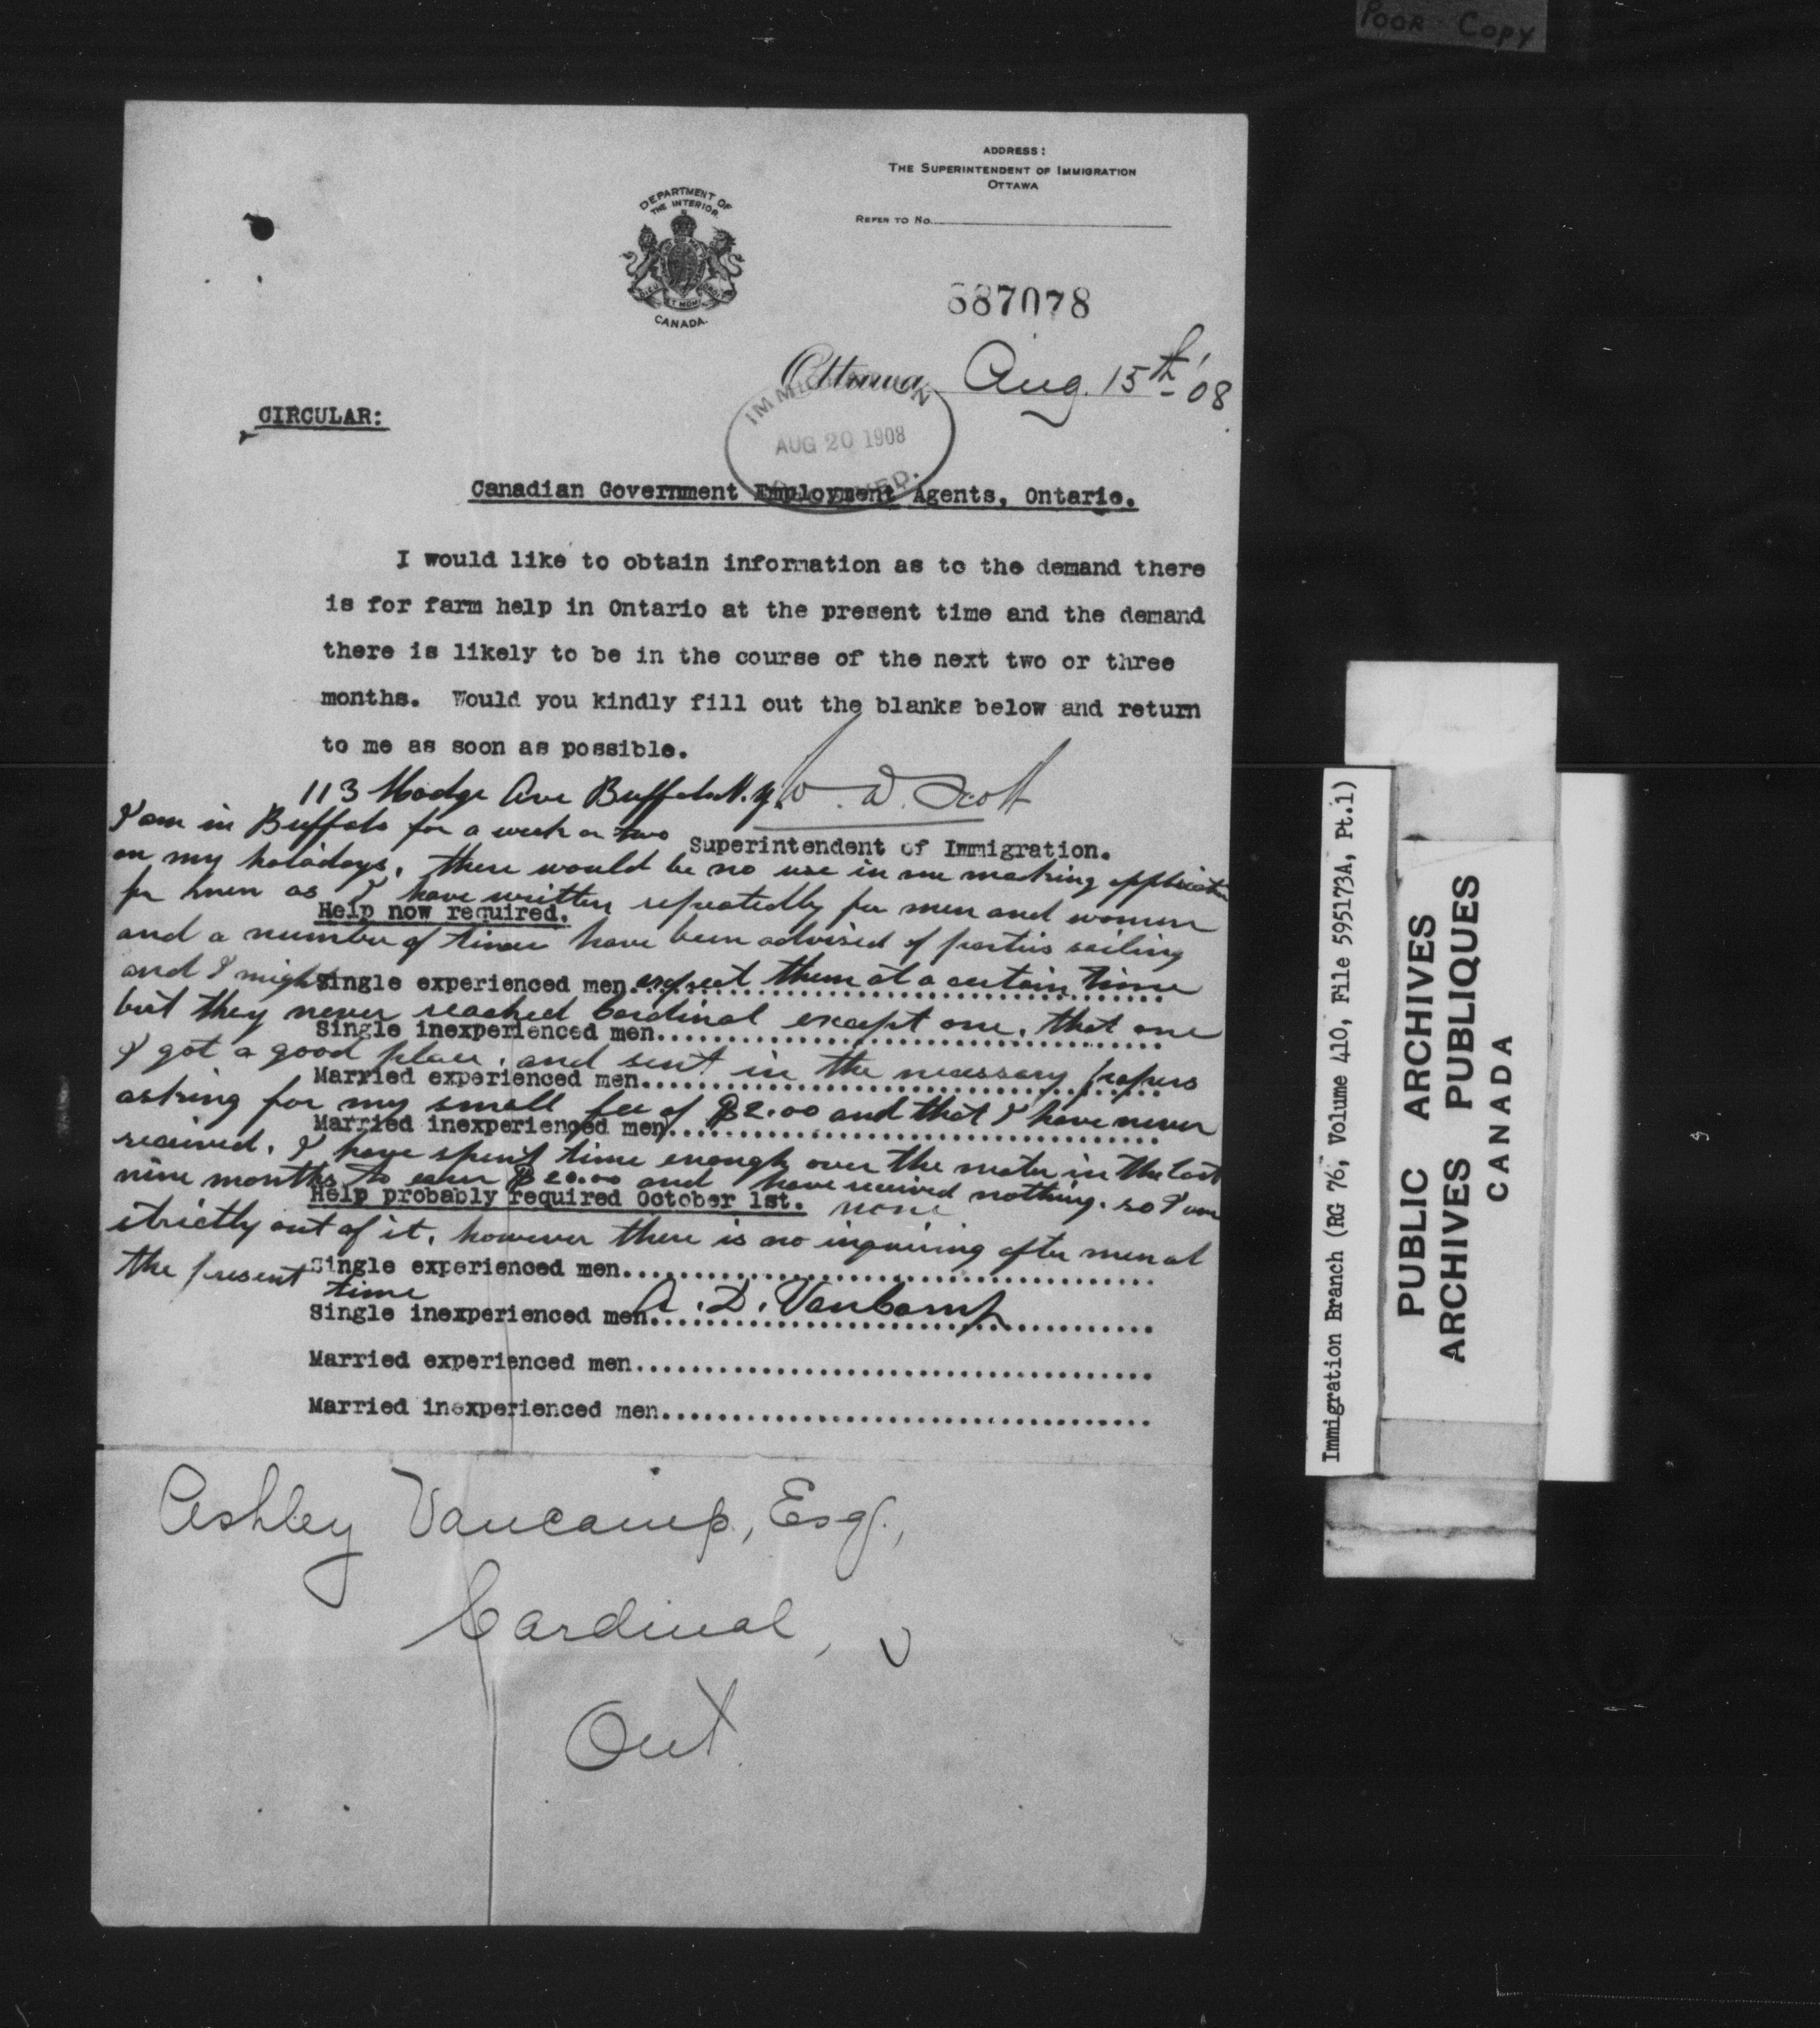 POOR COPY
ADDRESS:
THE SUPERINTENDENT OF IMMIGRATION
OTTAWA
REFER TO No.
DEPARTMENT OF
THE INTERIOR
CANADA.
687078
Ottawa Aug. 15th '08
IMMIGRATION
AUG 20 1908
CIRCULAR:
Canadian Government Employment Agents, Ontario.
I would like to obtain information as to the demand there
is for farm help in Ontario at the present time and the demand
there is likely to be in the course of the next two or three
months. Would you kindly fill out the blanks below and return
to me as soon as possible.
W. D. Scott
Superintendent of Immigration.
113 Hodge Ave Buffalo N.Y.
I am in Buffalo for a week or two
on my holadays, there would be no use in me making application
for men as I have written repeatedly for men and women
Help now required.
and a number of times have been advised of parties sailing
and I might expect them at a certain time
Single experienced men
but they never reached Cardinal except one, that one
Single inexperienced men
I got a good place, and sent in the necessary papers
Married experienced men
asking for my small fee of $2.00 and that I have never
Married inexperienced men
received. I have spent time enough over the mater in the last
nine months to earn $20.00 and have received nothing. so I am
Help probably required October 1st. none
strictly out of it, however there is no inquiring after men at
the present time
Single experienced men
A. D. Vancamp
Single inexperienced men
Married experienced men
Married inexperienced men
Ashley Vancamp, Esq.,
Cardinal,
Ont.
Immigration Branch (RG 76, Volume 410, File 595173A, Pt.1)
PUBLIC ARCHIVES
ARCHIVES PUBLIQUES
CANADA